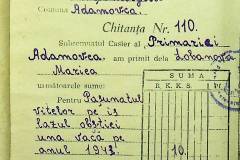 Comuna Adamovca.
Chitanţa Nr. 110.
Subsemnatul Casier al Primariei
Adamovca. am primit dela Lobanova
Marica
următoarele sume:
SUMA
Pentru Paşunatul
vitelor pe is
lazul obştiei
una vacă pe
anul 1943.
10.